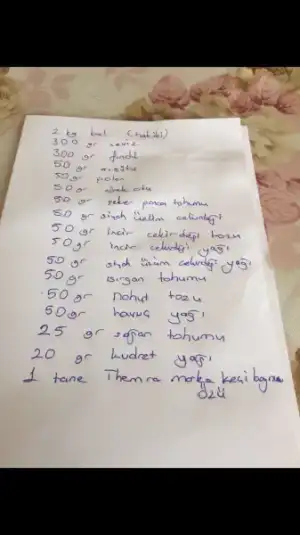 2 kg bal (hakiki)
300 gr ceviz
300 gr fındık
50 gr
50 gr polen
50 gr çörek otu
50 gr tohumu
50 gr siyah üzüm çekirdeği
50 gr incir çekirdeği tozu
50 gr incir çekirdeği yağı
50 gr siyah üzüm çekirdeği yağı
50 gr ısırgan tohumu
50 gr Nohut tozu
50 gr havuç yağı
25 gr soğan tohumu
20 gr kudret yağı
1 tane Themra marka keçi
özü